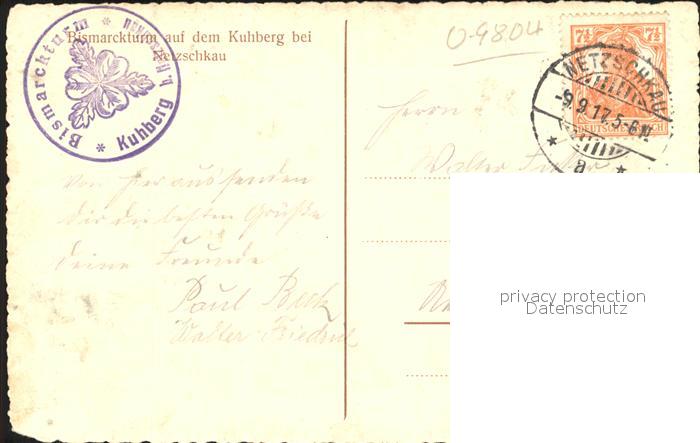 Bismarckturm auf dem Kuhberg bei
Netzschkau
* Bismarckturm * Kuhberg
U-9804
7½ 7½
DEUTSCHES REICH
NETZSCHKAU
-9.9.17.5-6N.
* a *
Herrn
Walter
Von hier aus senden
dir die besten Grüße
deine Freunde
Paul Beck
Walter Friedrich
privacy protection
Datenschutz